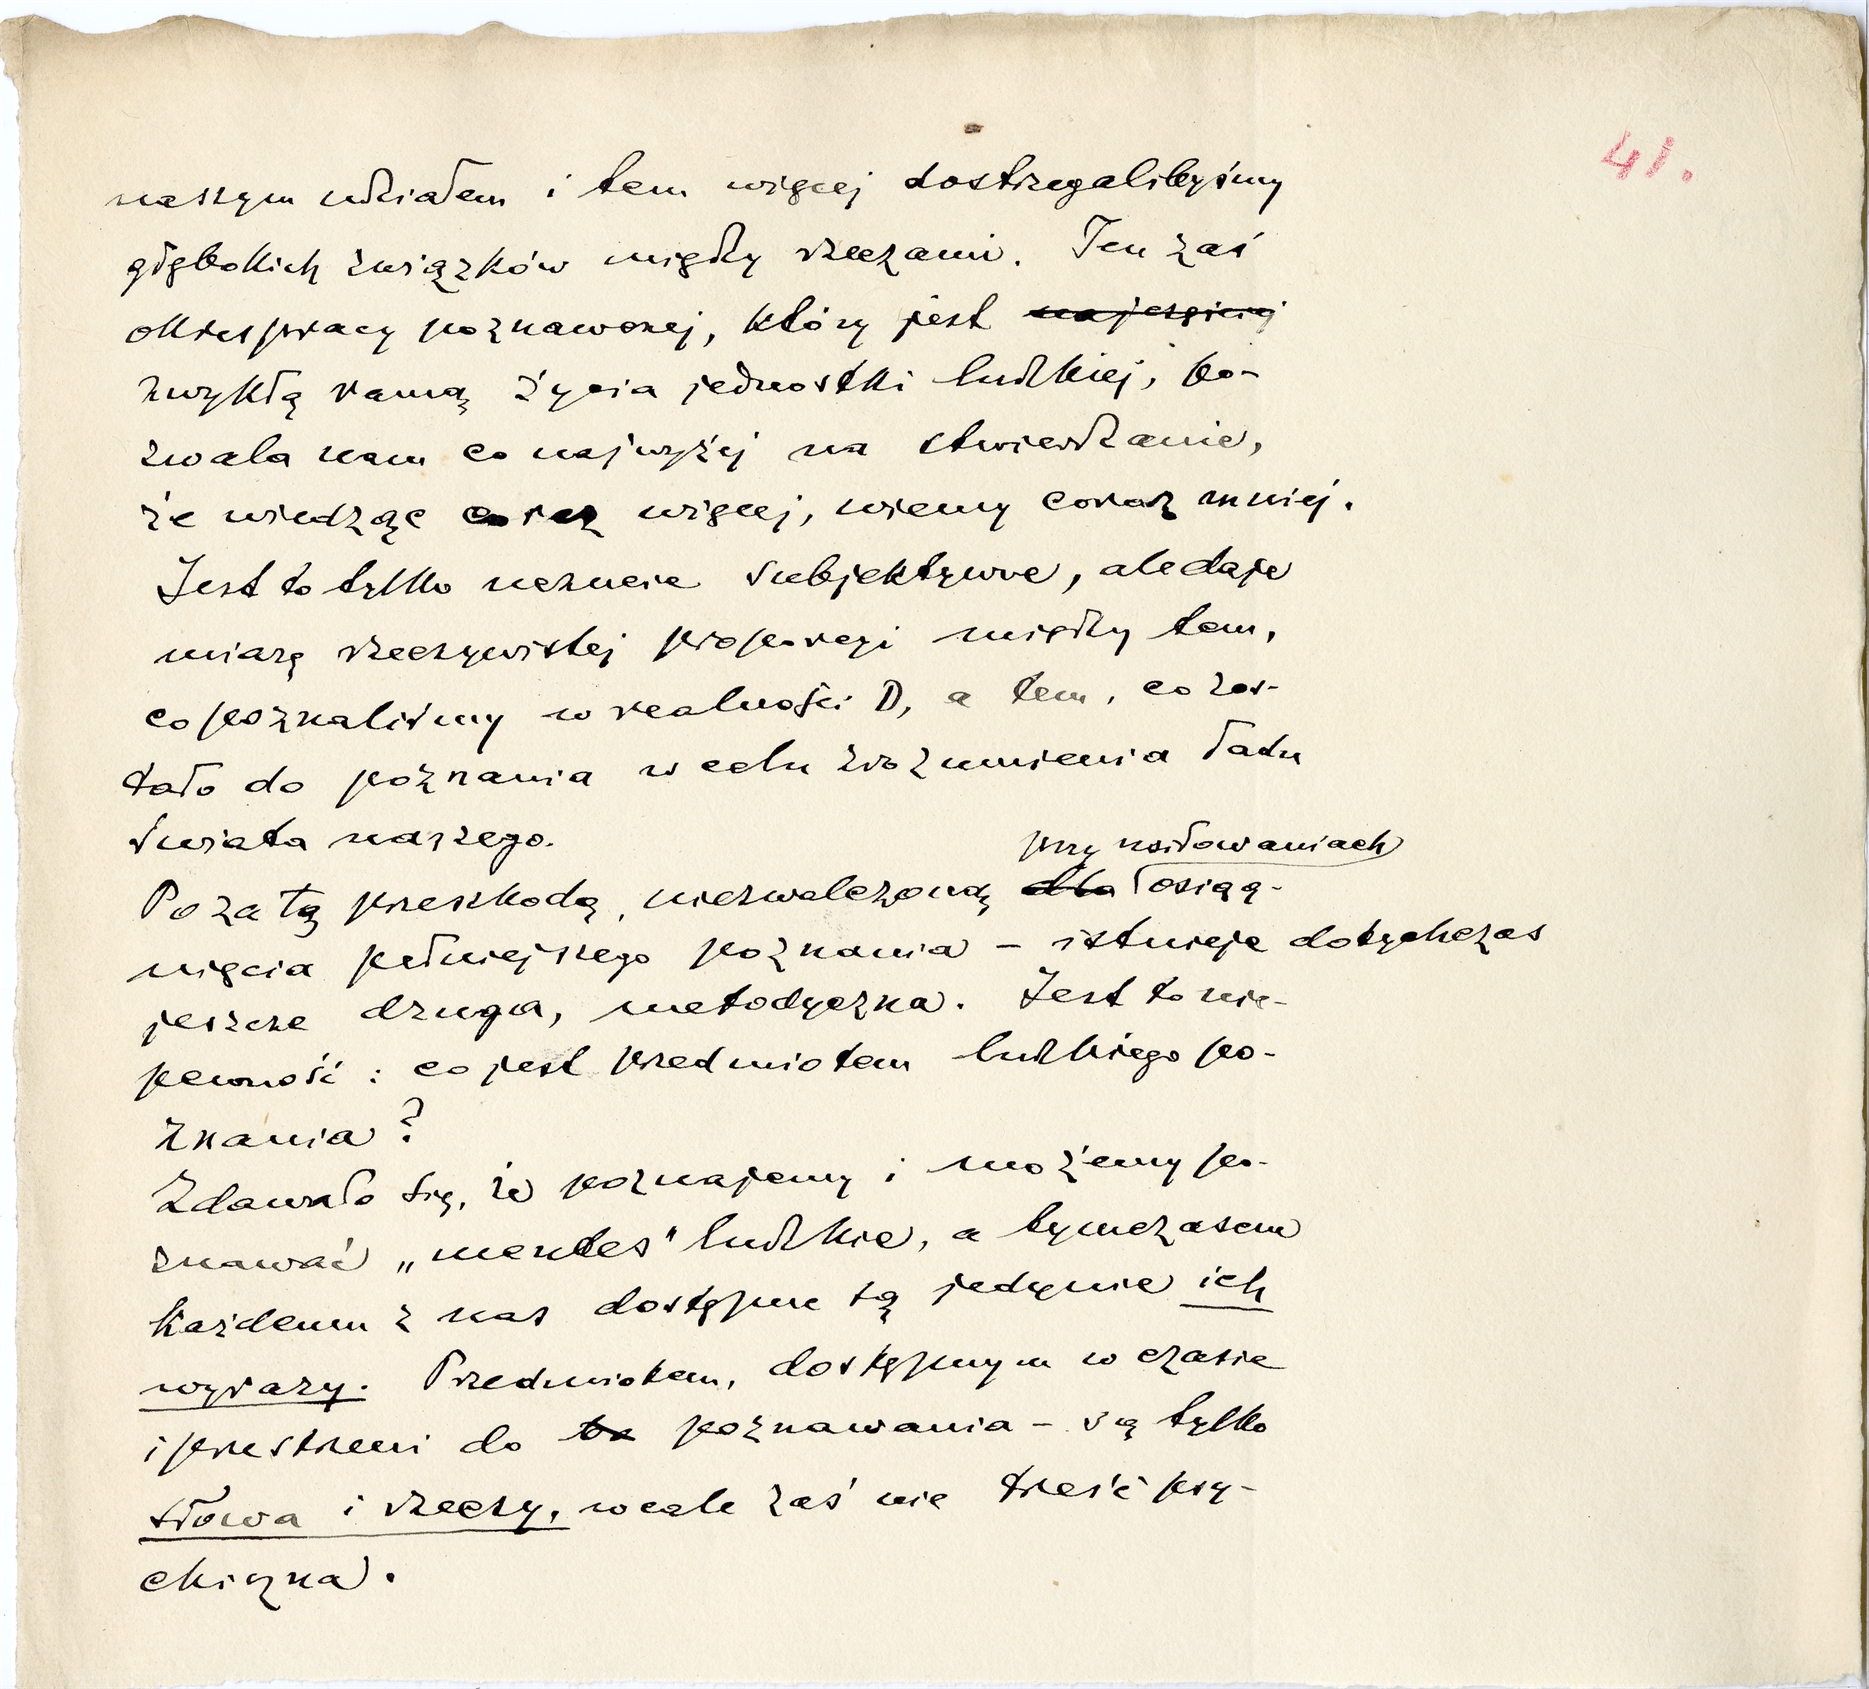 41.
naszym udziałem i tem więcej dostrzegalibyśmy
głębokich związków między rzeczami. Ten zaś
okres pracy poznawczej, który jest
zwykłą ramą życia jednostki ludzkiej, po-
zwala nam co najwyżej na stwierdzanie,
że wiedząc coraz więcej, wiemy coraz mniej.
Jest to tylko uczucie subjektywne, ale daje
miarę rzeczywistej proporcji między tem,
co poznaliśmy w realności D, a tem, co zos-
tało do poznania w celu zrozumienia ładu
świata naszego.
przy usiłowaniach
Poza tą przeszkodą, niezwalczoną dla osiąg-
nięcia pełniejszego poznania – istnieje dotychczas
jeszcze druga, metodyczna. Jest to nie-
pewność: co jest przedmiotem ludzkiego po-
znania?
Zdawało się, że poznajemy i możemy po-
znawać „mentes" ludzkie, a tymczasem
każdemu z nas dostępne są jedynie ich
wyrazy. Przedmiotem, dostępnym w czasie
i przestrzeni do poznawania – są tylko
słowa i rzeczy, wcale zaś nie treść psy-
chiczna.